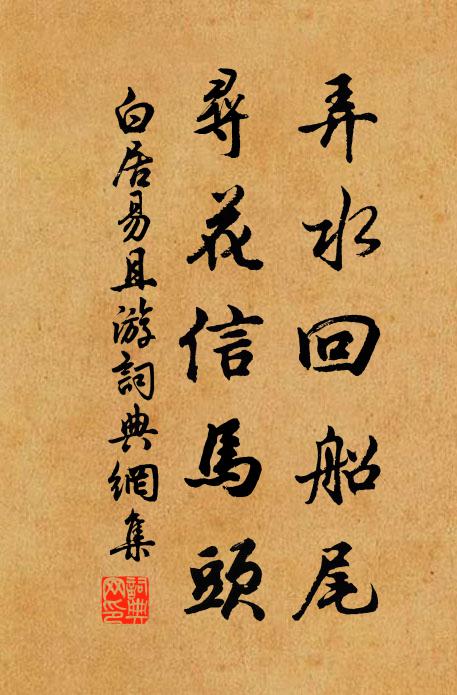 弄水回船尾
尋花信馬頭
白居易且游詞典網集
詞典
网印